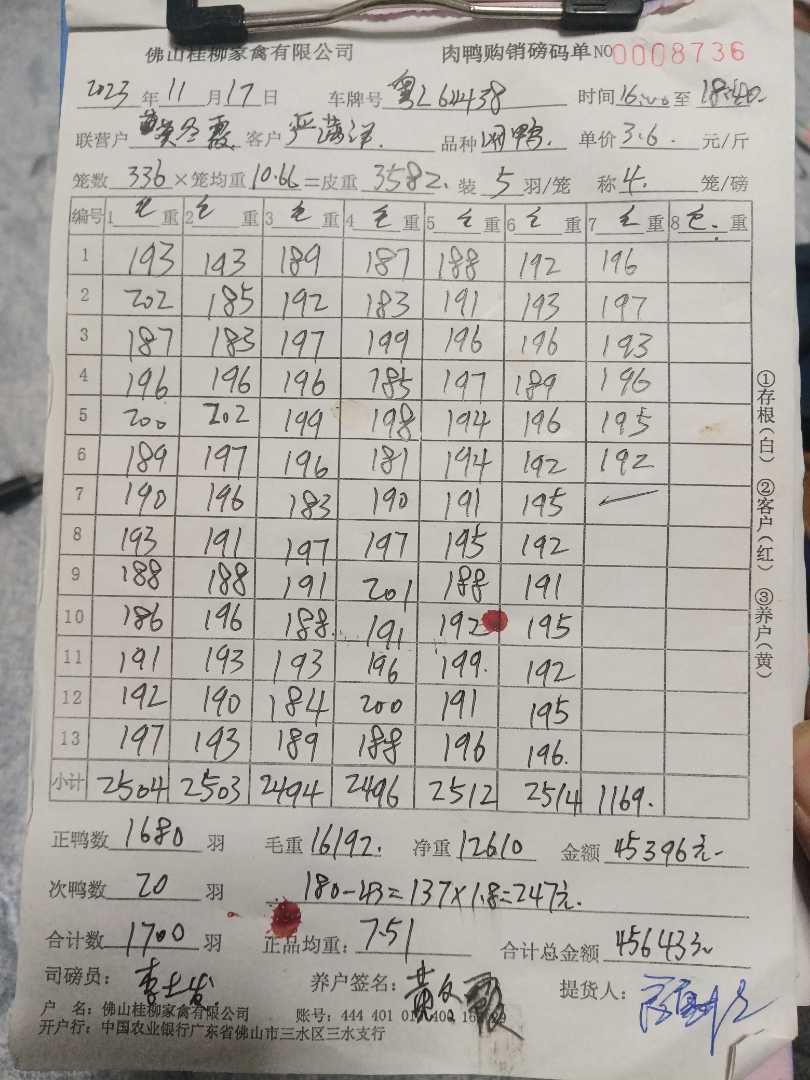 佛山桂柳家禽有限公司 肉鸭购销磅码单NO 0008736
2023年11月17日 车牌号 粤L 时间16:00至18:40
联营户 黄冬霞 客户 严满洋 品种 鸭 单价3.6元/斤
笼数336×笼均重10.66=皮重3582 装5羽/笼 称4笼/磅
编号 1毛重 2毛重 3毛重 4毛重 5毛重 6毛重 7毛重 8毛重
1 193 193 189 187 188 192 196
2 202 185 192 183 191 193 197
3 187 183 197 199 196 196 193
4 196 196 196 185 197 189 196
5 200 202 199 198 194 196 195
6 189 197 196 181 194 192 192
7 190 196 183 190 191 195
8 193 191 197 197 195 192
9 188 188 191 201 188 191
10 186 196 188 191 192 195
11 191 193 193 196 199 192
12 192 190 184 200 191 195
13 197 193 189 188 196 196
小计 2504 2503 2494 2496 2512 2514 1169
正鸭数1680羽 毛重16192 净重12610 金额45396元
次鸭数20羽 180-43=137×1.8=247元
合计数1700羽 正品均重:7.51 合计总金额456433
司磅员: 养户签名: 提货人:
户 名:佛山桂柳家禽有限公司 账号:444 401 01
开户行:中国农业银行广东省佛山市三水区三水支行
①存根(白) ②客户(红) ③养户(黄)